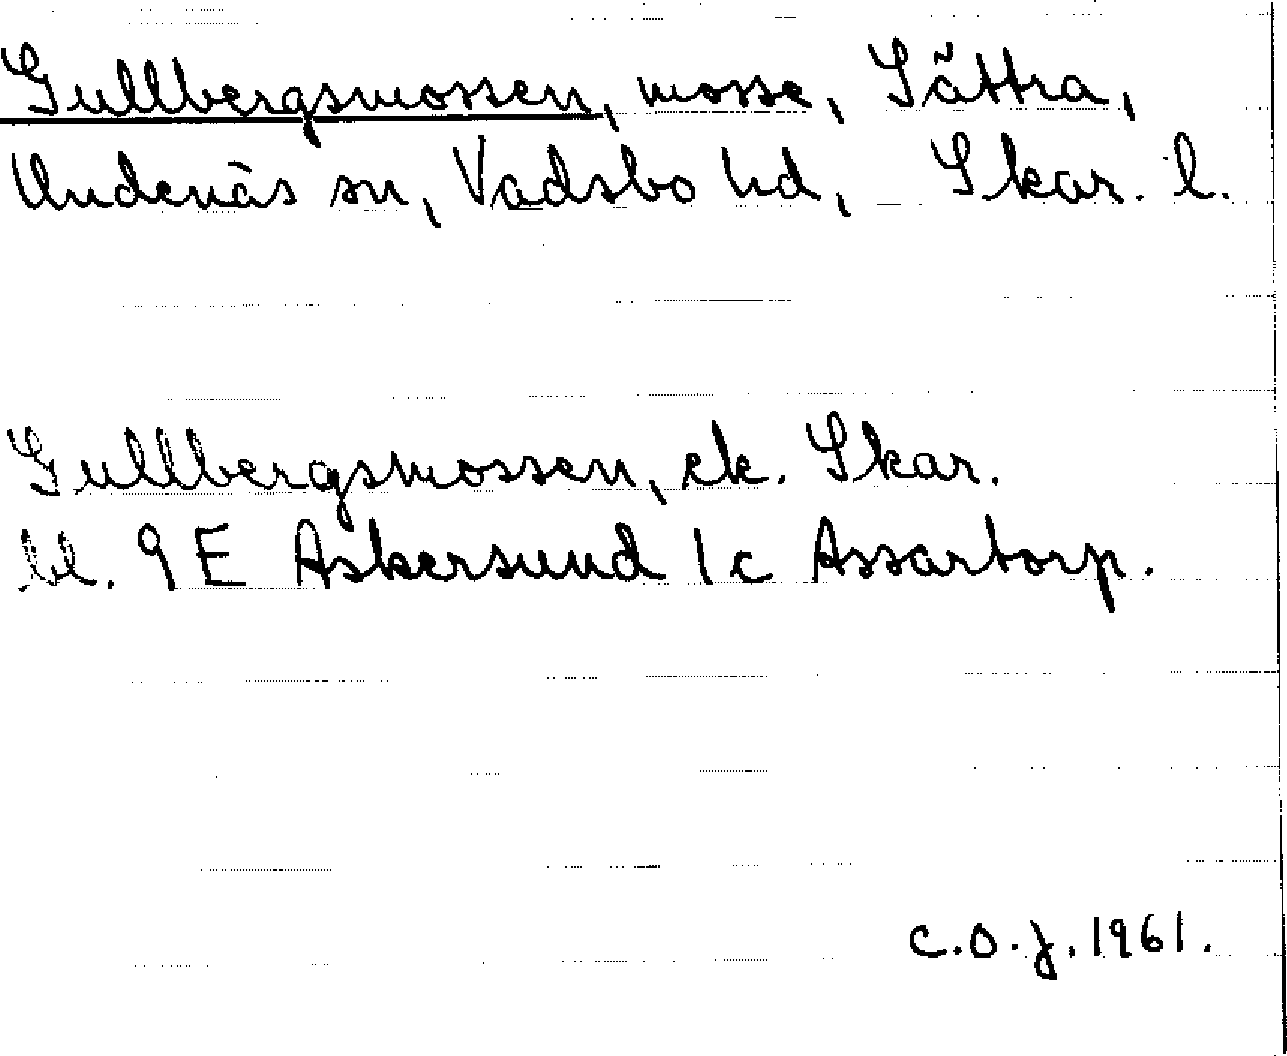 Gullbergsmossen, mosse, Sättra,
Undenäs sn, Vadsbo hd, Skar. l.
Gullbergsmossen, ek. Skar.
bl. 9 E Askersund 1c Assartorp.
C.O.J. 1961.